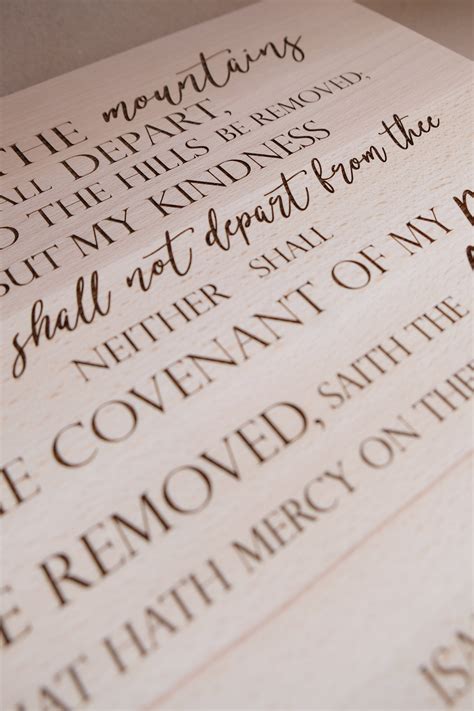 THE mountains
ALL DEPART,
D THE HILLS BE REMOVED;
BUT MY KINDNESS
shall not depart from thee
NEITHER SHALL
E COVENANT OF MY
E REMOVED, SAITH THE
AT HATH MERCY ON THE
ISA